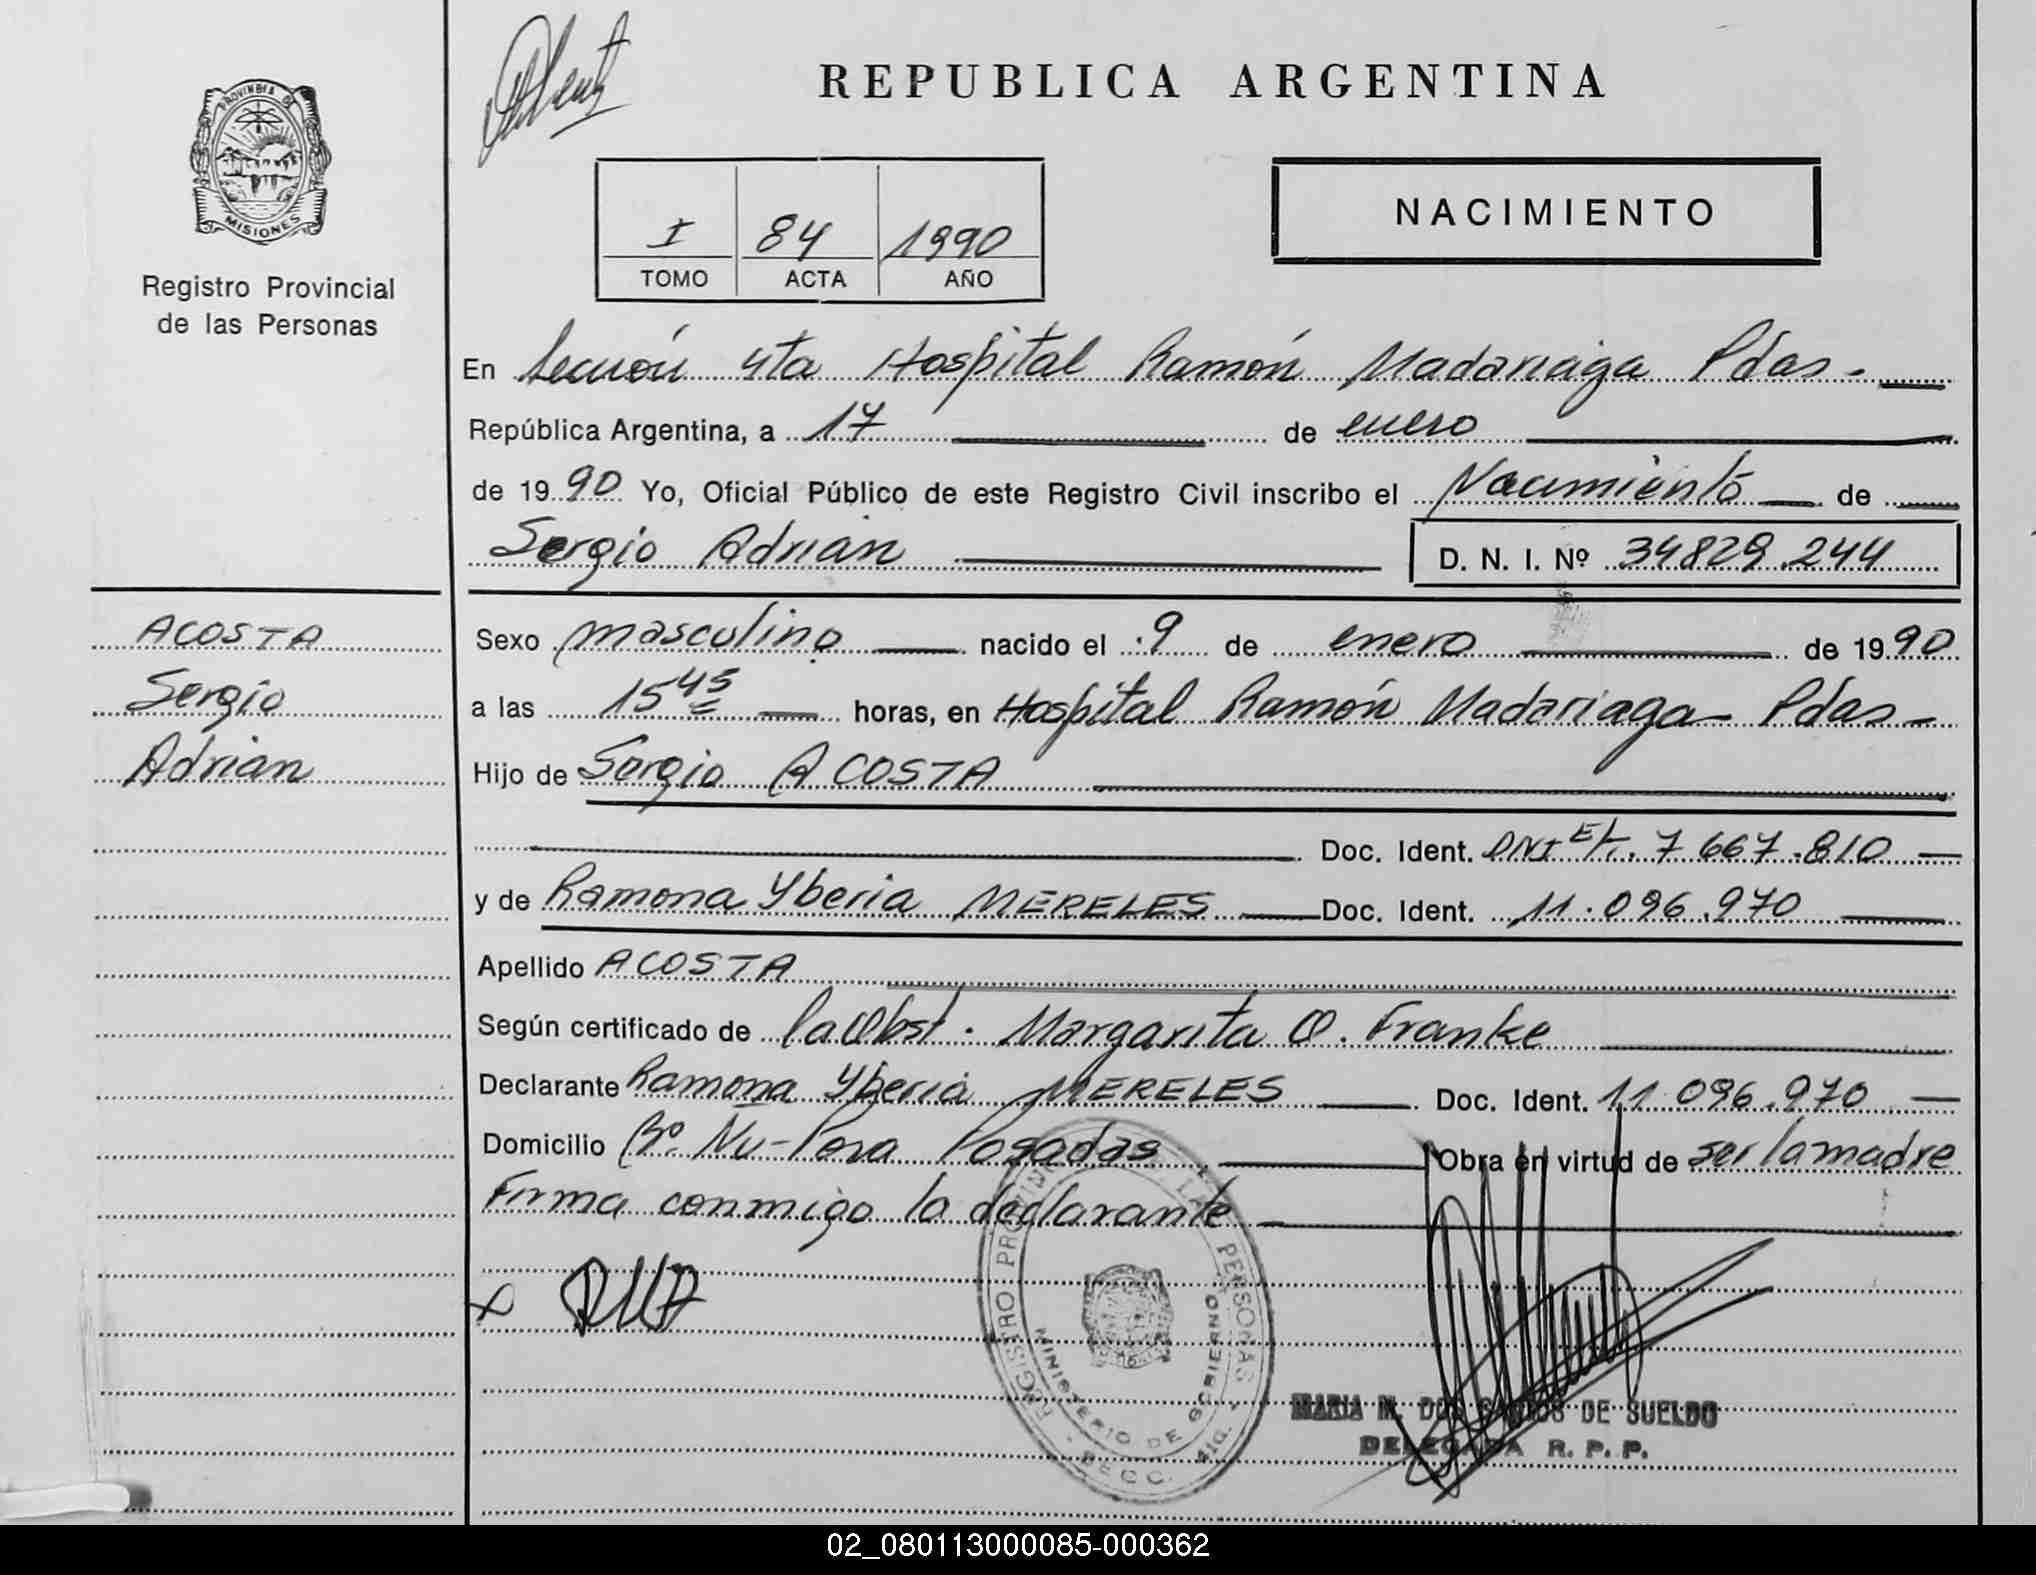 REPUBLICA ARGENTINA
PROVINCIA DE
MISIONES
Registro Provincial
de las Personas
I 84 1990
TOMO ACTA AÑO
NACIMIENTO
En Sección 4ta Hospital Ramón Madariaga Pdas.
República Argentina, a 17 de enero
de 1990 Yo, Oficial Público de este Registro Civil inscribo el Nacimiento de
Sergio Adrian D. N. I. Nº 34829.244
ACOSTA
Sergio
Adrian
Sexo masculino nacido el 9 de enero de 1990
a las 15 45 horas, en Hospital Ramón Madariaga Pdas
Hijo de Sergio ACOSTA
Doc. Ident. DNI 7 667.810
y de Ramona Yberia MERELES Doc. Ident. 11.096.970
Apellido ACOSTA
Según certificado de la Obst. Margarita O. Franke
Declarante Ramona Yberia MERELES Doc. Ident. 11 096.970
Domicilio Bº. Ñu-Pora Posadas Obra en virtud de ser la madre
Firma conmigo la declarante
REGISTRO PROVINCIAL DE LAS PERSONAS
MINISTERIO DE GOBIERNO
MARIA M. DOS SANTOS DE SUELDO
DELEGADA R. P. P.
02_080113000085-000362